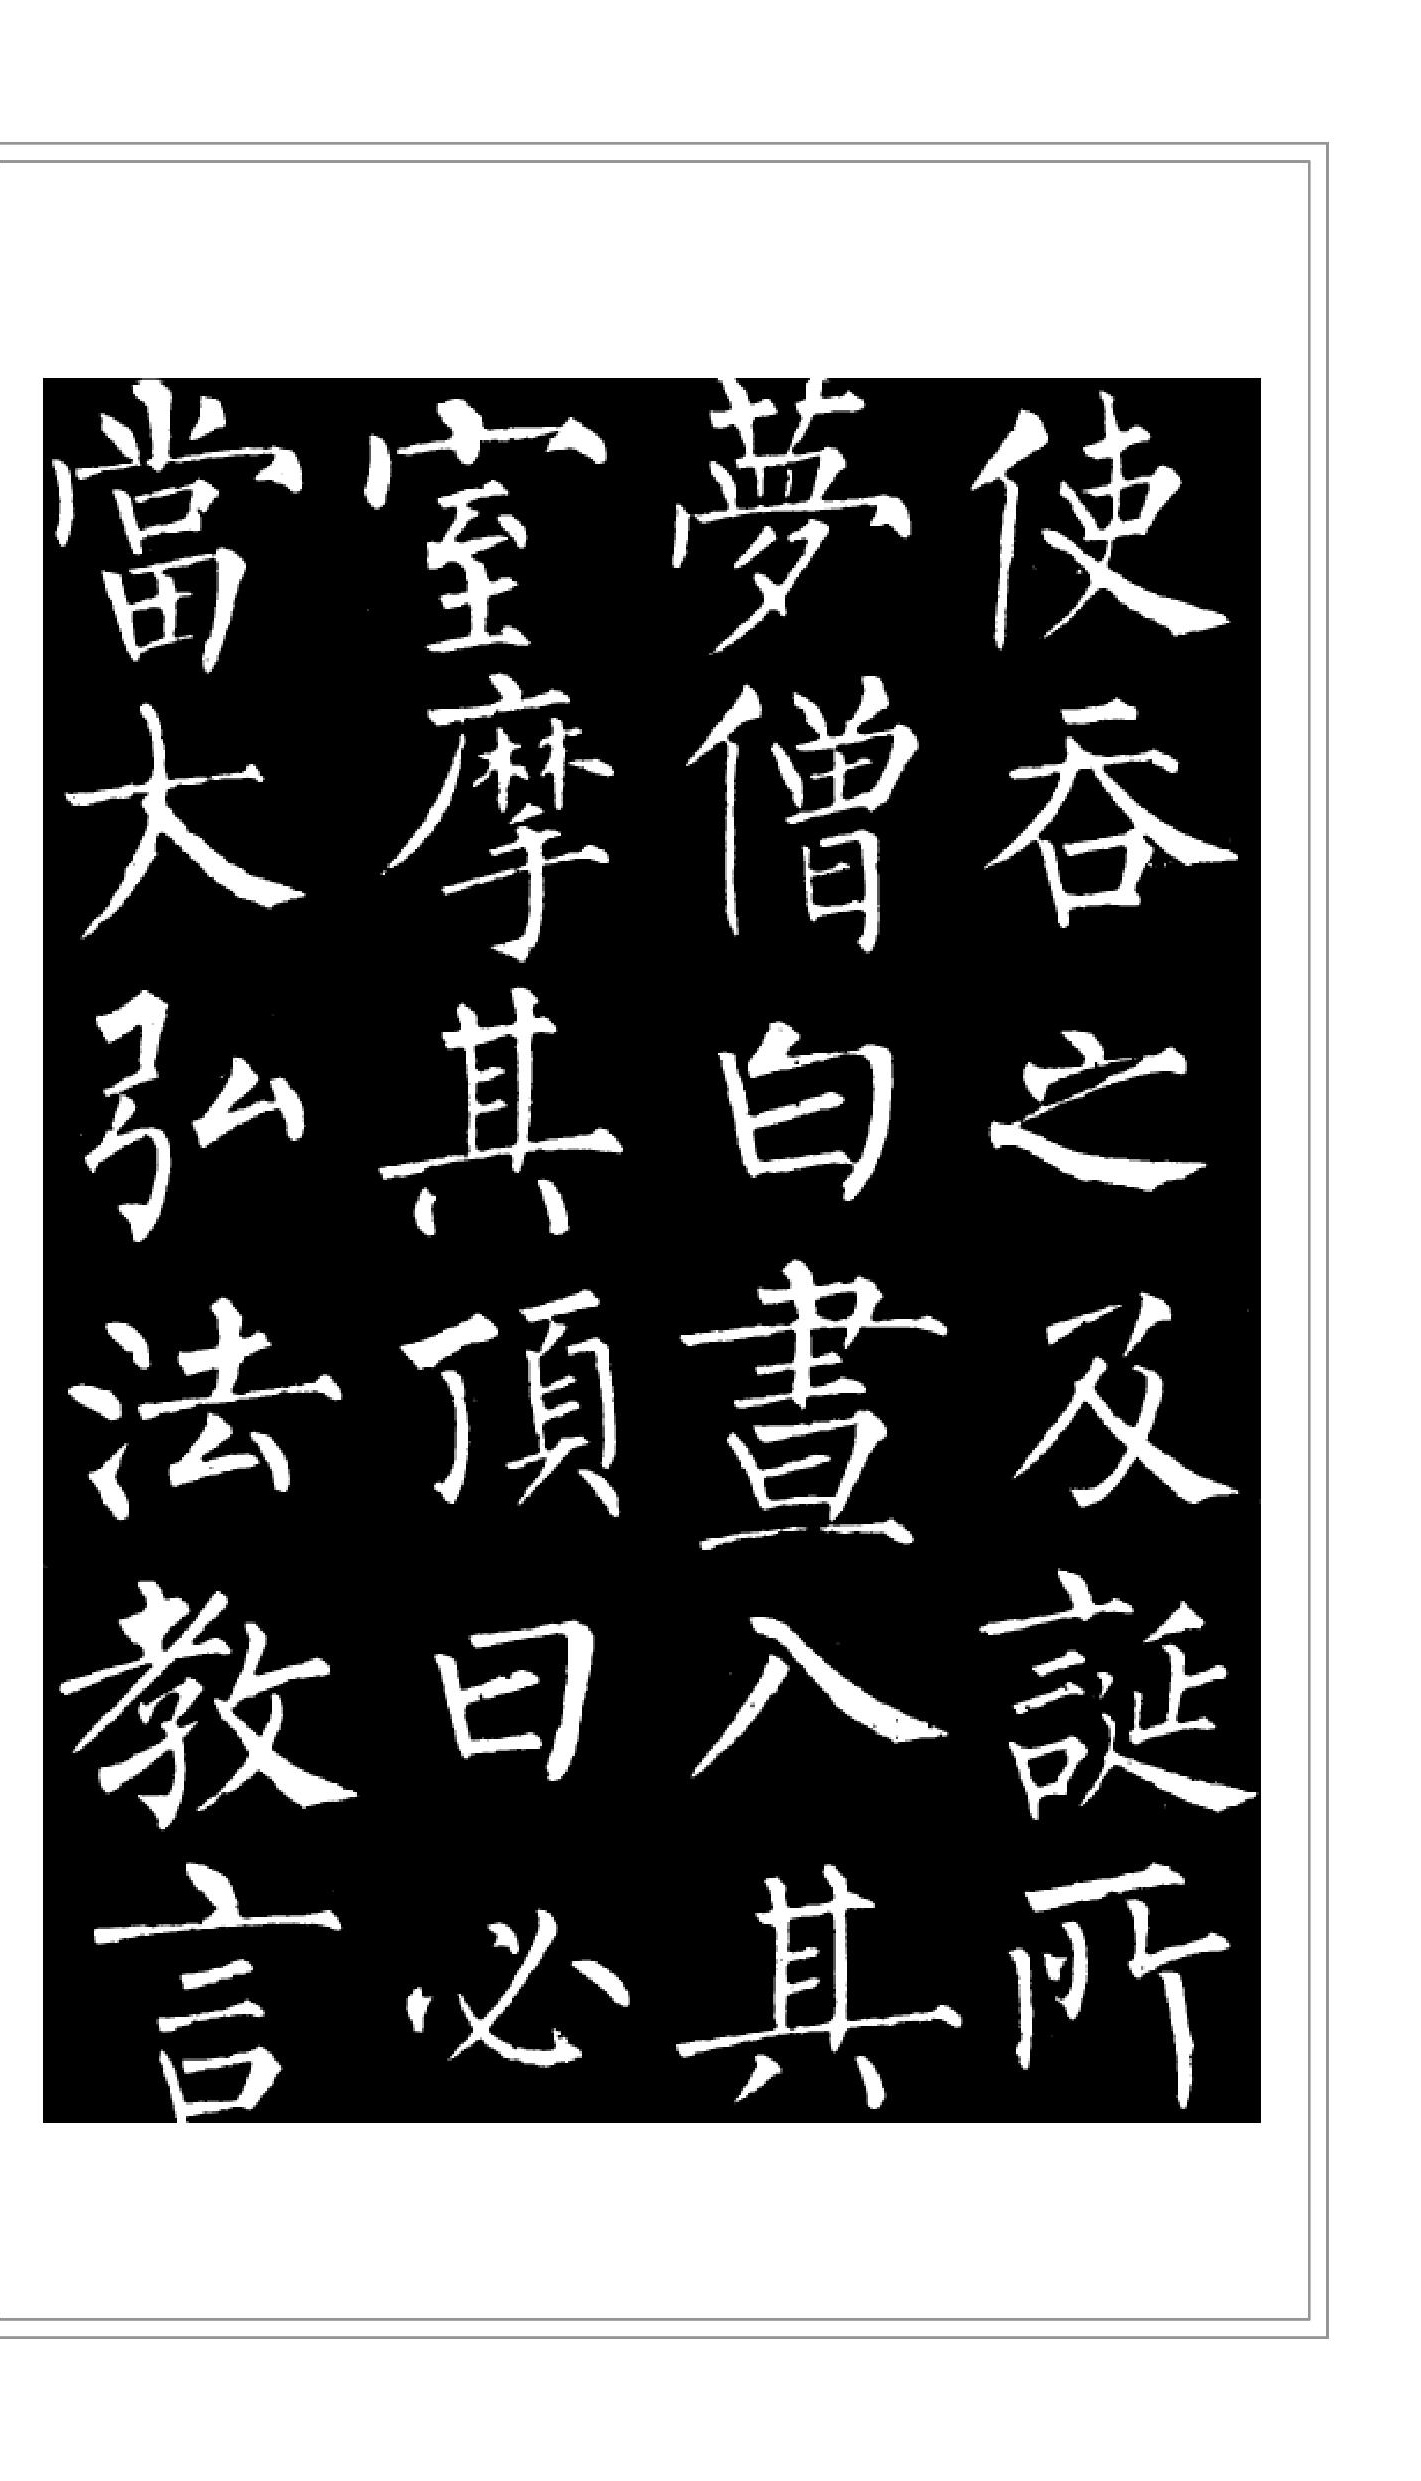 使吞之及誕所
夢僧白晝入其
室摩其頂曰必
當大弘法教言